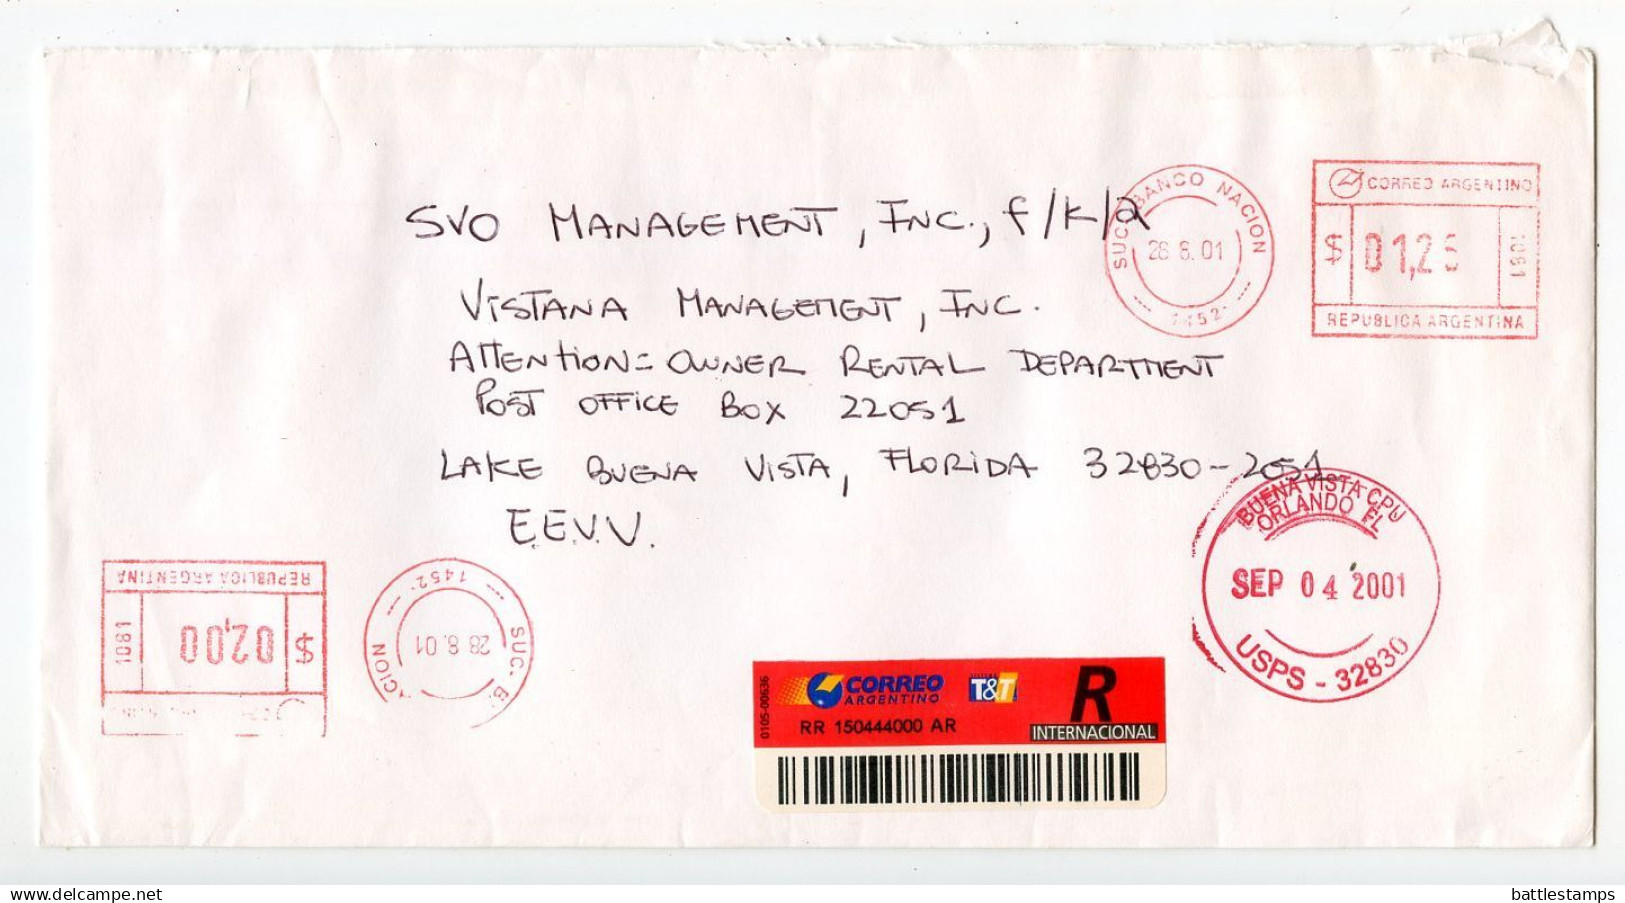 SVO MANAGEMENT, INC., f/k/a
VISTANA MANAGEMENT, INC.
ATTENTION= OWNER RENTAL DEPARTMENT
POST OFFICE BOX 22051
LAKE BUENA VISTA, FLORIDA 32830-2051
E.E.V.V.
SUC. BANCO NACION
28 8. 01
1452
CORREO ARGENTINO
$ 01,25
1081
REPUBLICA ARGENTINA
BUENA VISTA CPU
ORLANDO FL
SEP 04 2001
USPS - 32830
REPUBLICA ARGENTINA
1081
$ 02,00
1452
28 8. 01
SUC. B
ACION
0105-00636
CORREO
ARGENTINO
T&T
R
RR 150444000 AR
INTERNACIONAL
www.delcampe.net
battlestamps